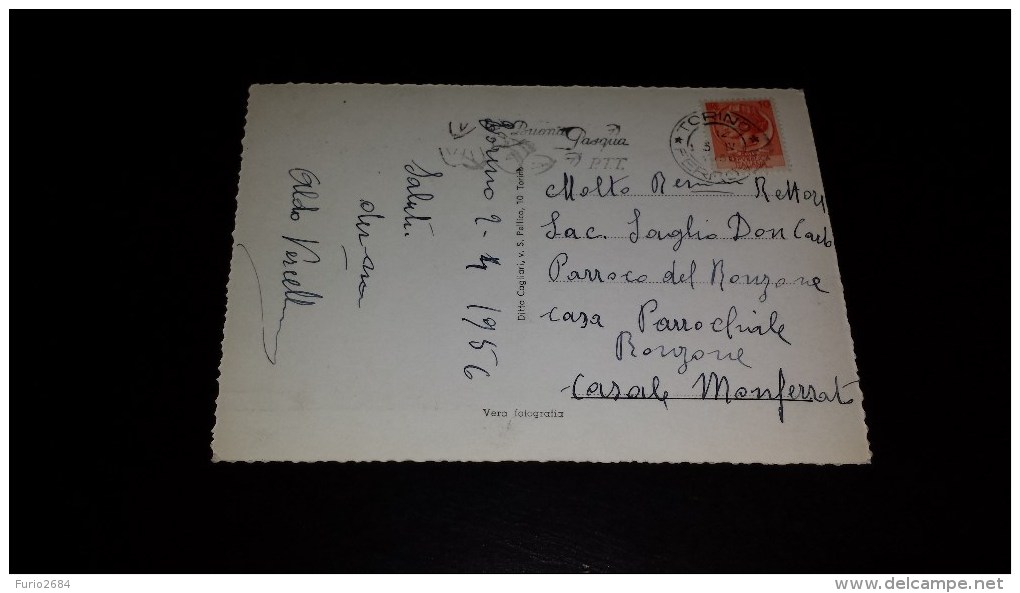 Torino 2-4 1956
Saluti
Aldo Vercell
Ditta Cagliari, v. S. Pellico, 10 Torino
Buona Pasqua
P.T.T.
TORINO
FERROVIA
Molto Rev Rettore
Sac. Saglio Don Carlo
Parroco del Ronzone
casa Parrochiale
Ronzone
Casale Monferrato
Vera fotografia
Furio2684
www.delcampe.net